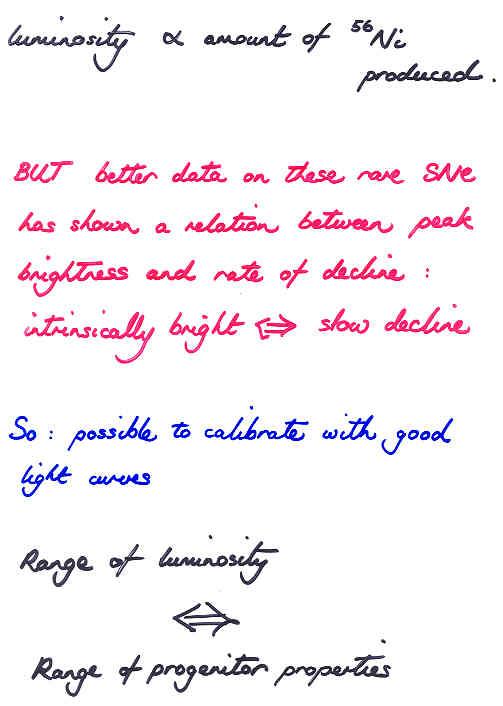 luminosity ∝ amount of ⁵⁶Ni
produced.
BUT better data on these rare SNe
has shown a relation between peak
brightness and rate of decline :
intrinsically bright ⇔ slow decline
So : possible to calibrate with good
light curves
Range of luminosity
⇔
Range of progenitor properties